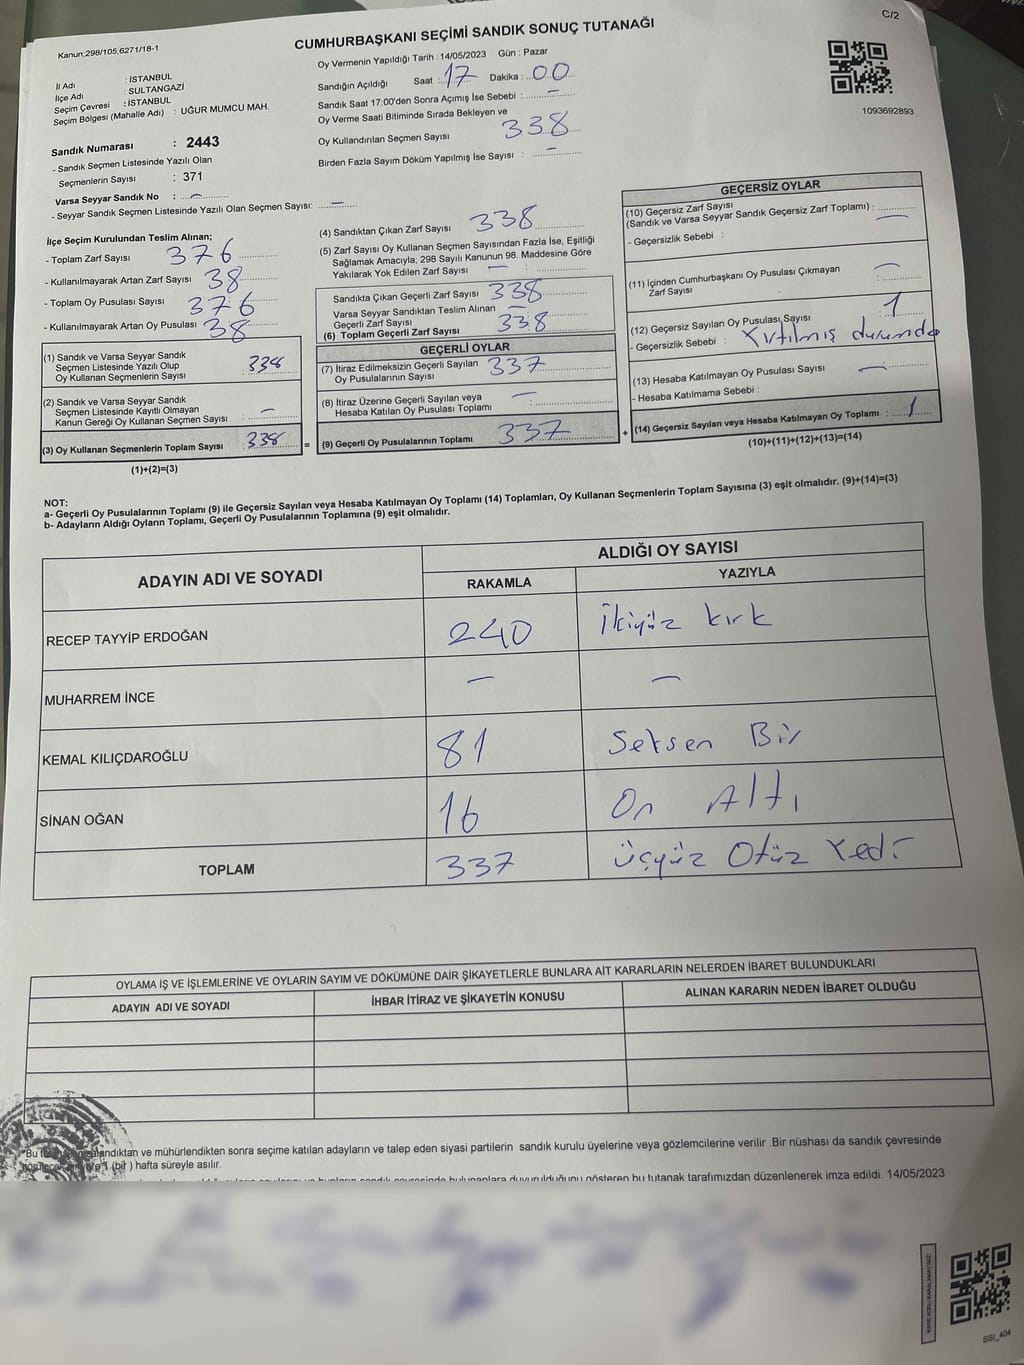 C/2
CUMHURBAŞKANI SEÇİMİ SANDIK SONUÇ TUTANAĞI
Kanun:298/105,6271/18-1
Oy Vermenin Yapıldığı Tarih :14/05/2023 Gün : Pazar
İl Adı : İSTANBUL
İlçe Adı : SULTANGAZİ
Seçim Çevresi : İSTANBUL
Seçim Bölgesi (Mahalle Adı) : UĞUR MUMCU MAH.
Sandığın Açıldığı Saat : 17 Dakika : 00
Sandık Saat 17:00'den Sonra Açımış İse Sebebi : –
Oy Verme Saati Bitiminde Sırada Bekleyen ve
Oy Kullandırılan Seçmen Sayısı 338
Birden Fazla Sayım Döküm Yapılmış İse Sayısı : –
1093692893
Sandık Numarası : 2443
- Sandık Seçmen Listesinde Yazılı Olan
Seçmenlerin Sayısı : 371
Varsa Seyyar Sandık No : –
- Seyyar Sandık Seçmen Listesinde Yazılı Olan Seçmen Sayısı: –
İlçe Seçim Kurulundan Teslim Alınan;
- Toplam Zarf Sayısı 376
- Kullanılmayarak Artan Zarf Sayısı 38
- Toplam Oy Pusulası Sayısı 376
- Kullanılmayarak Artan Oy Pusulası 38
(1) Sandık ve Varsa Seyyar Sandık
Seçmen Listesinde Yazılı Olup
Oy Kullanan Seçmenlerin Sayısı : 338
(2) Sandık ve Varsa Seyyar Sandık
Seçmen Listesinde Kayıtlı Olmayan
Kanun Gereği Oy Kullanan Seçmen Sayısı : –
(3) Oy Kullanan Seçmenlerin Toplam Sayısı : 338
(1)+(2)=(3)
=
(4) Sandıktan Çıkan Zarf Sayısı 338
(5) Zarf Sayısı Oy Kullanan Seçmen Sayısından Fazla İse, Eşitliği
Sağlamak Amacıyla, 298 Sayılı Kanunun 98. Maddesine Göre
Yakılarak Yok Edilen Zarf Sayısı – :
Sandıkta Çıkan Geçerli Zarf Sayısı 338
Varsa Seyyar Sandıktan Teslim Alınan –
Geçerli Zarf Sayısı
(6) Toplam Geçerli Zarf Sayısı 338
GEÇERLİ OYLAR
(7) İtiraz Edilmeksizin Geçerli Sayılan
Oy Pusulalarının Sayısı 337
(8) İtiraz Üzerine Geçerli Sayılan veya
Hesaba Katılan Oy Pusulası Toplamı : –
(9) Geçerli Oy Pusulalarının Toplamı 337
+
GEÇERSİZ OYLAR
(10) Geçersiz Zarf Sayısı
(Sandık ve Varsa Seyyar Sandık Geçersiz Zarf Toplamı) : –
- Geçersizlik Sebebi :
(11) İçinden Cumhurbaşkanı Oy Pusulası Çıkmayan
Zarf Sayısı : –
(12) Geçersiz Sayılan Oy Pusulası Sayısı : 1
- Geçersizlik Sebebi : Yırtılmış durumda
(13) Hesaba Katılmayan Oy Pusulası Sayısı : –
- Hesaba Katılmama Sebebi :
(14) Geçersiz Sayılan veya Hesaba Katılmayan Oy Toplamı : 1
(10)+(11)+(12)+(13)=(14)
NOT:
a- Geçerli Oy Pusulalarının Toplamı (9) ile Geçersiz Sayılan veya Hesaba Katılmayan Oy Toplamı (14) Toplamları, Oy Kullanan Seçmenlerin Toplam Sayısına (3) eşit olmalıdır. (9)+(14)=(3)
b- Adayların Aldığı Oyların Toplamı, Geçerli Oy Pusulalarının Toplamına (9) eşit olmalıdır.
ADAYIN ADI VE SOYADI
ALDIĞI OY SAYISI
RAKAMLA YAZIYLA
RECEP TAYYİP ERDOĞAN 240 İkiyüz kırk
MUHARREM İNCE – –
KEMAL KILIÇDAROĞLU 81 Seksen Bir
SİNAN OĞAN 16 On Altı
TOPLAM 337 Üçyüz Otuz Yedi
OYLAMA İŞ VE İŞLEMLERİNE VE OYLARIN SAYIM VE DÖKÜMÜNE DAİR ŞİKAYETLERLE BUNLARA AİT KARARLARIN NELERDEN İBARET BULUNDUKLARI
ADAYIN ADI VE SOYADI İHBAR İTİRAZ VE ŞİKAYETİN KONUSU ALINAN KARARIN NEDEN İBARET OLDUĞU
*Bu landıktan ve mühürlendikten sonra seçime katılan adayların ve talep eden siyasi partilerin sandık kurulu üyelerine veya gözlemcilerine verilir .Bir nüshası da sandık çevresinde
1 (bir ) hafta süreyle asılır.
bulunanlara duyurulduğunu gösteren bu tutanak tarafımızdan düzenlenerek imza edildi. 14/05/2023
SSI_404